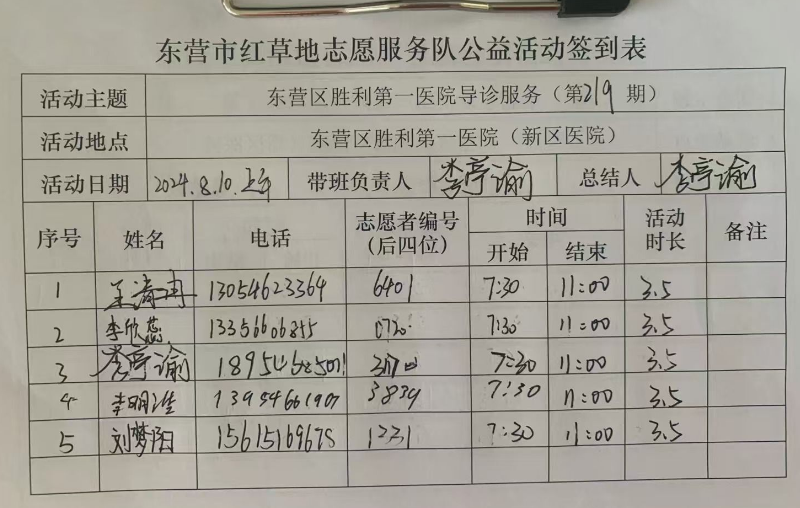 东营市红草地志愿服务队公益活动签到表
活动主题 东营区胜利第一医院导诊服务（第219期）
活动地点 东营区胜利第一医院（新区医院）
活动日期 2024.8.10.上午 带班负责人 李亭谕 总结人 李亭谕
序号 姓名 电话 志愿者编号（后四位） 时间 开始 结束 活动时长 备注
1 13054623364 6401 7:30 11:00 3.5
2 李欣蕊 13356606855 0720 7:30 11:00 3.5
3 李亭谕 7:30 11:00 3.5
4 李明 3839 7:30 11:00 3.5
5 刘梦阳 15615169678 1231 7:30 11:00 3.5